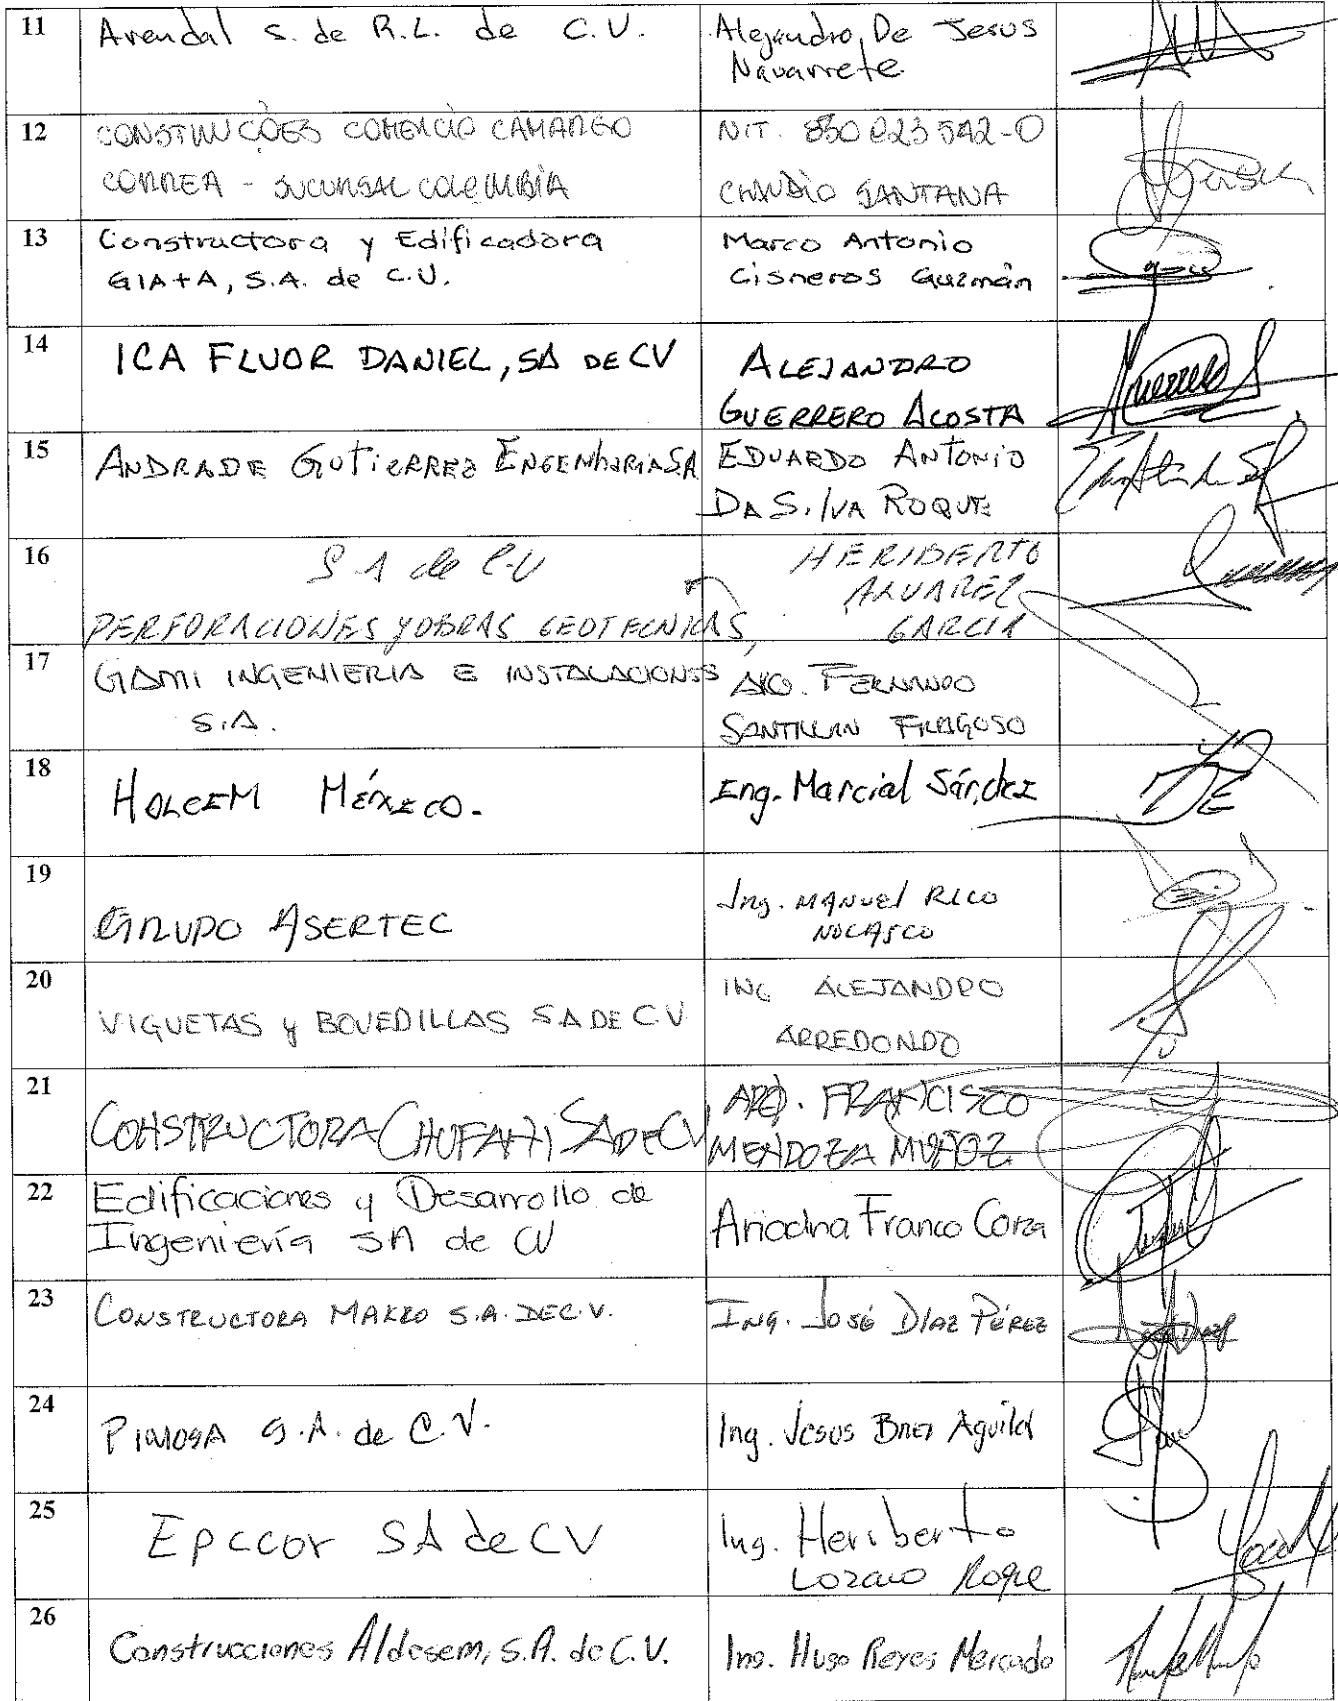 11
Arendal S. de R.L. de C.V.
Alejandro De Jesus
Navarrete
12
CONSTRUCÕES COMERCIO CAMARGO
CORREA - SUCURSAL COLOMBIA
NIT.
CLAUDIO SANTANA
13
Constructora y Edificadora
GIA+A, S.A. de C.V.
Marco Antonio
Cisneros Guzmán
14
ICA FLUOR DANIEL, SA DE CV
ALEJANDRO
GUERRERO ACOSTA
15
ANDRADE GUTIERREZ ENGENHARIA SA
EDUARDO ANTONIO
DA SILVA ROQUE
16
S A de C.V
PERFORACIONES Y OBRAS GEOTECNICAS,
HERIBERTO
ALVAREZ
GARCIA
17
GAMI INGENIERIA E INSTALACIONES
S.A.
FERNANDO
SANTILLAN FRAGOSO
18
HOLCIM MÉXICO.
Eng. Marcial Sánchez
19
GRUPO ASERTEC
Ing. MANUEL RICO
NOLASCO
20
VIGUETAS y BOVEDILLAS SA DE CV
ING ALEJANDRO
ARREDONDO
21
CONSTRUCTORA CHUFANI SA DE CV
ARQ. FRANCISCO
MENDOZA MUÑOZ
22
Edificaciones y Desarrollo de
Ingeniería SA de CV
Ariadna Franco Corza
23
CONSTRUCTORA MAKRO S.A. DE C.V.
ING. JOSÉ DÍAZ PÉREZ
24
PIMOSA S.A. de C.V.
Ing. Jesus Aguilar
25
Epccor SA de CV
Ing. Heriberto
Lozano Roque
26
Construcciones Aldesem, S.A. de C.V.
Ing. Hugo Reyes Mercado